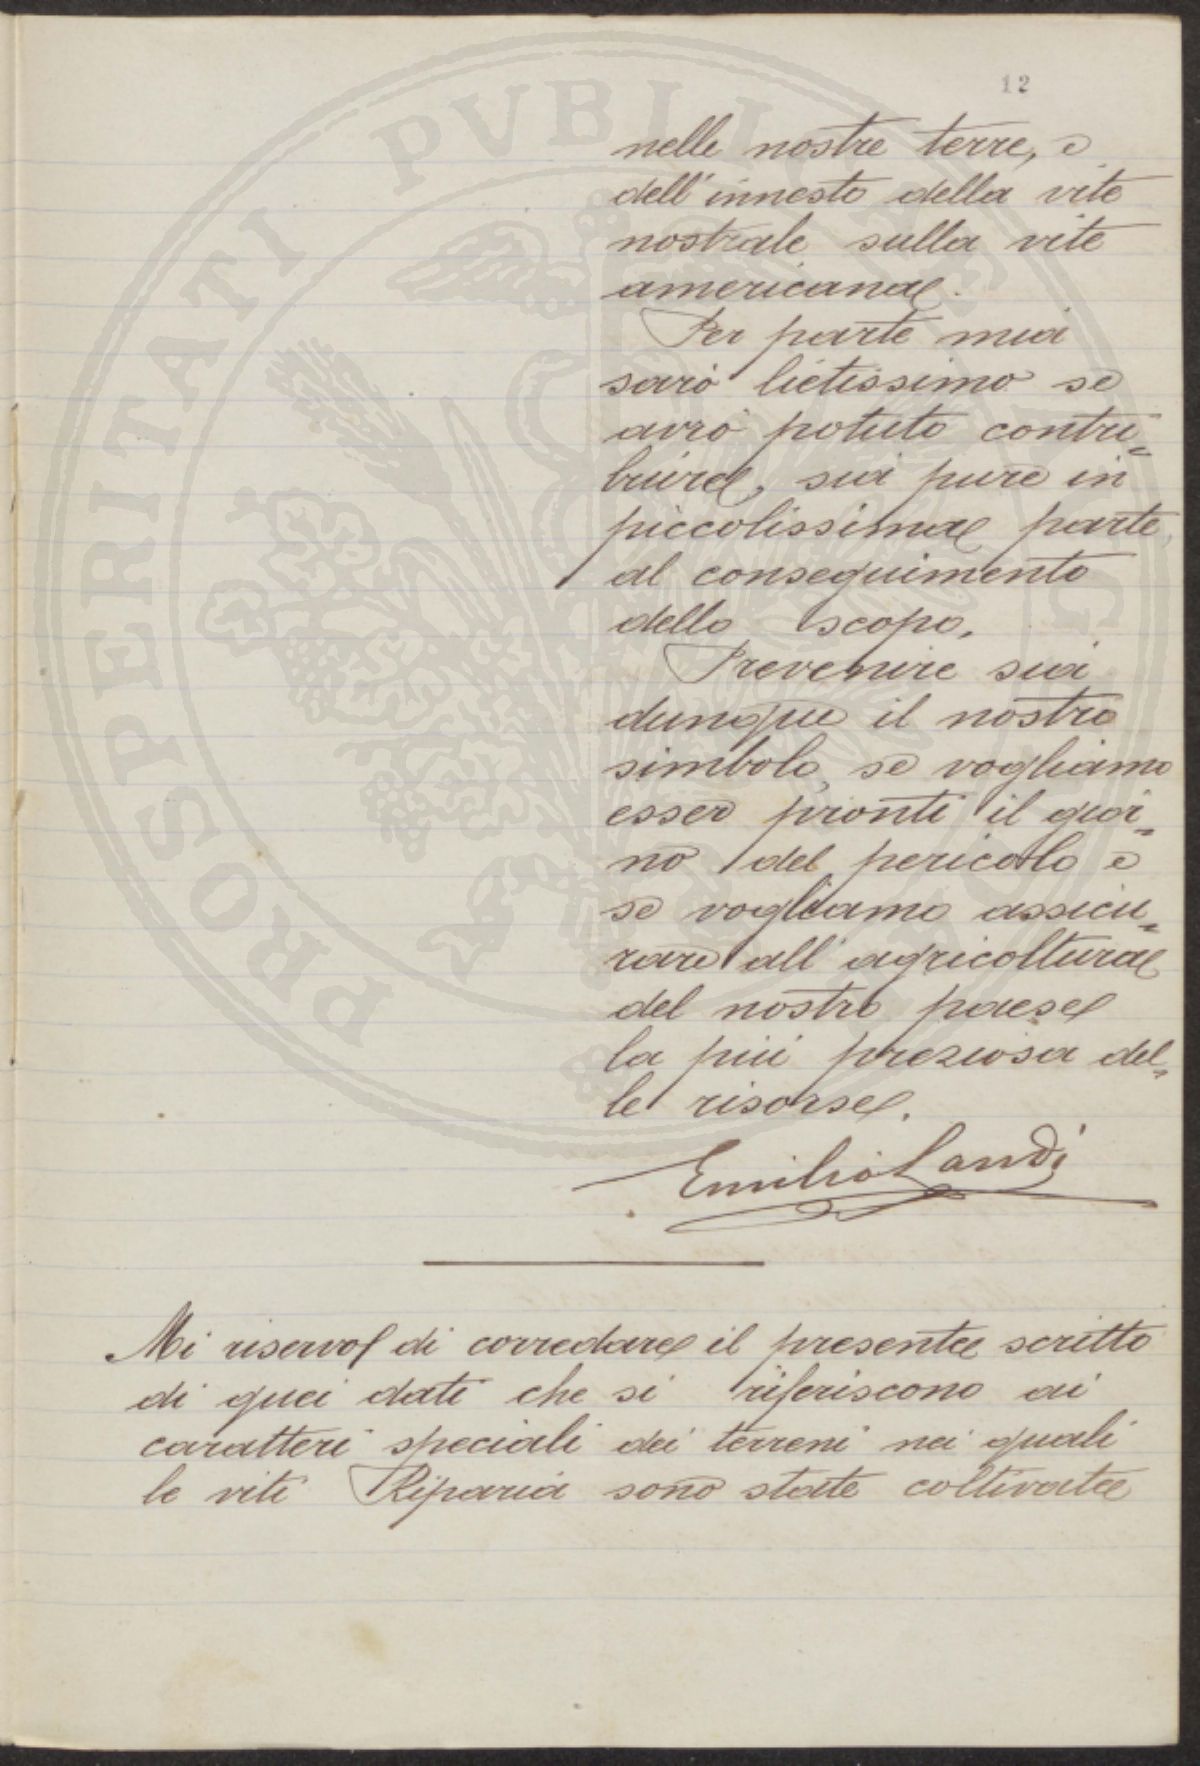 12
nelle nostre terre, e
dell'innesto della vite
nostrale sulla vite
americana.
Per parte mia
sarò lietissimo se
avrò potuto contri=
buire, sia pure in
piccolissima parte,
al conseguimento
dello scopo.
Prevenire sia
dunque il nostro
simbolo, se vogliamo
esser pronti il gior=
no del pericolo e
se vogliamo assicu=
rare all'agricoltura
del nostro paese
la più preziosa del=
le risorse.
Emilio Landi
Mi riservo di corredare il presente scritto
di quei dati che si riferiscono ai
caratteri speciali dei terreni nei quali
le viti Riparia sono state coltivate
PROSPERITATI PVBLICAE